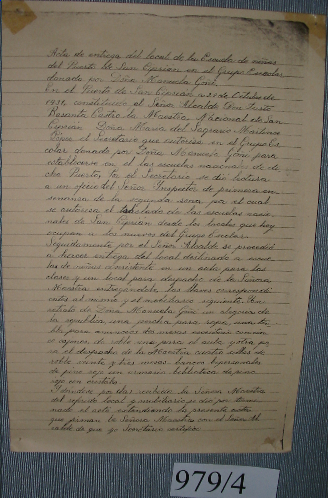 Acta de entrega del local de la Escuela de niñas
del Puerto de San Ciprian en el Grupo Escolar
donado por Doña Manuela Goñi
En el Puerto de San Ciprian a 21 de Octubre de
1931, constituidos el Señor Alcalde Don Justo
Basanta Castro, la Maestra Nacional de San
Ciprian Doña Maria del Sagrario
el Secretario que autoriza en el Grupo Es-
colar donado por Doña Manuela Goñi para
establecerse en él las escuelas nacionales de di-
cho Puerto. Por el Secretario se dio lectura
a un oficio del Señor Inspector de primera en-
señanza de la segunda zona por el cual
se autoriza el traslado de las escuelas nacio-
nales de San Ciprian desde los locales que hoy
ocupan a los nuevos del Grupo Escolar.
Seguidamente por el Señor Alcalde se procedió
a hacer entrega del local destinado a escue-
la de niñas consistente en un aula para las
clases y un local para despacho de la Señora
Maestra entregandole las llaves correspondi-
entes al mismo y el mobiliario siguiente: Un
retrato de Doña Manuela Goñi, un
la republica, una percha para ropa,
para
cajones de roble una para el aula y otra pa-
ra el despacho de la Maestra, cuatro sillas de
roble, veinte y tres mesas bancos bipersonales
de pino rojo, un armario biblioteca de pino
rojo con cristales.
Y dandose por recibida la Señora Maestra
del referido local y mobiliario se dió por termi-
nado el acto extendiendo la presente acta
que firman la Señora Maestra con el Señor Al-
calde de que yo Secretario certifico.
979/4